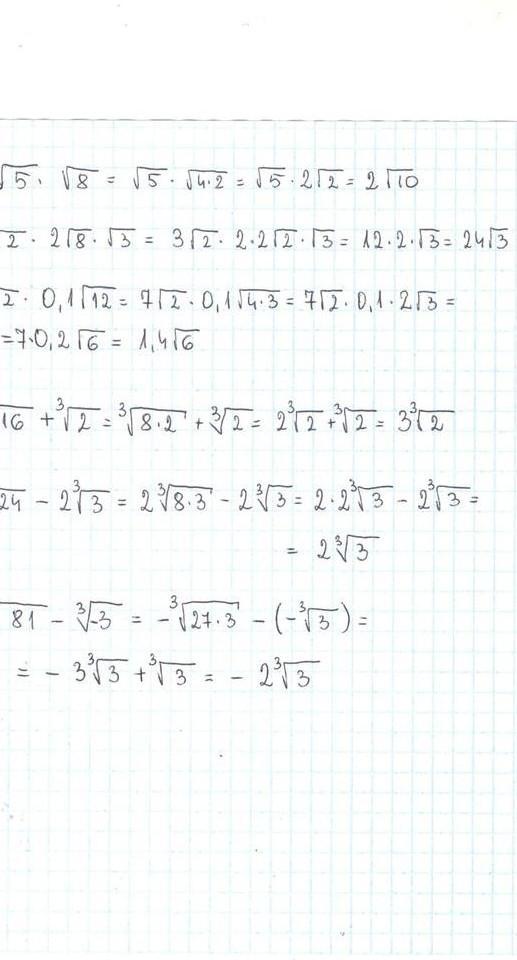 √5 · √8 = √5 · √4·2 = √5 · 2√2 = 2√10
2 · 2√8 · √3 = 3√2 · 2·2√2 · √3 = 12·2·√3 = 24√3
2 · 0,1√12 = 7√2 · 0,1√4·3 = 7√2 · 0,1·2√3 =
= 7·0,2√6 = 1,4√6
16 + ³√2 = ³√8·2 + ³√2 = 2³√2 + ³√2 = 3³√2
24 − 2³√3 = 2³√8·3 − 2³√3 = 2·2³√3 − 2³√3 =
= 2³√3
81 − ³√-3 = −³√27·3 − (−³√3) =
= − 3³√3 + ³√3 = − 2³√3